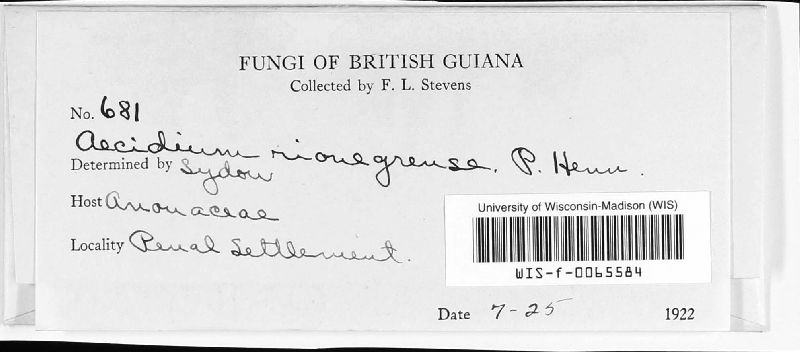 FUNGI OF BRITISH GUIANA
Collected by F. L. Stevens
No. 681
Aecidium rionegrense. P. Henn.
Determined by Sydow
Host Anonaceae
Locality Penal Settlement.
University of Wisconsin-Madison (WIS)
WIS-f-0065584
Date 7-25 1922